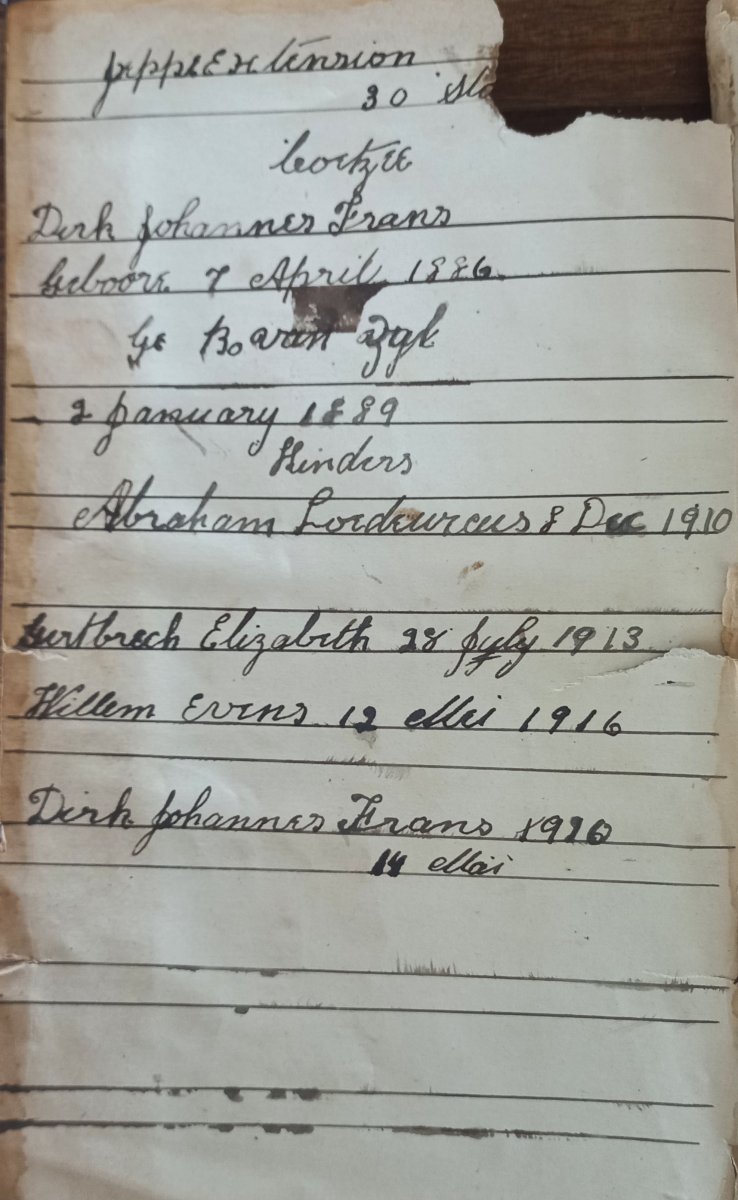 Jeppe Extension
30
Coetzee
Dirk Johannes Frans
Geboore 7 April 1886
Ge Bo van Zyl
2 January 1889
Kinders
Abraham Loedewicus 8 Dec 1910
Elizabeth 28 July 1913
Willem Evens 12 Mei 1916
Dirk Johannes Frans
14 Mei